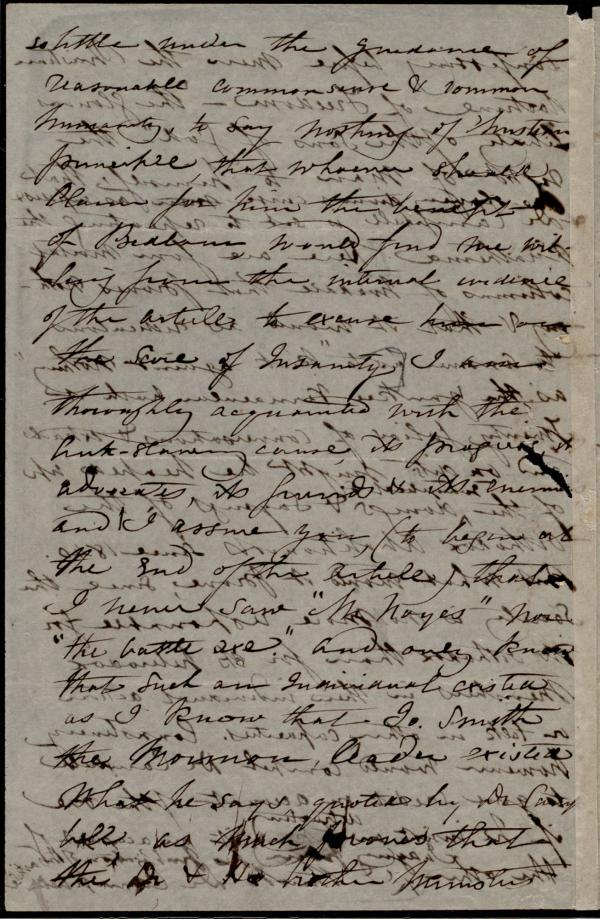 so little under the guidance of
reasonable common sense & common
humanity, to say nothing of Christian
principle, that whoever should
claim for him the benefit
of Bedlam would find me wil-
ling from the internal evidence
of the article, to excuse him on
the score of Insanity. I am
thoroughly acquainted with the
Anti-slavery cause, its progress, its
advocates, its friends & its enemies
and I assure you (to begin at
the End of the article) that
I never saw "Mr Noyes" nor
"the battle axe." and only know
that such an Individual existed
as I know that Jo. Smith
the Mormon leader existed
What he says quoted by Dr
as much proves that
the Dr & his brother Ministers